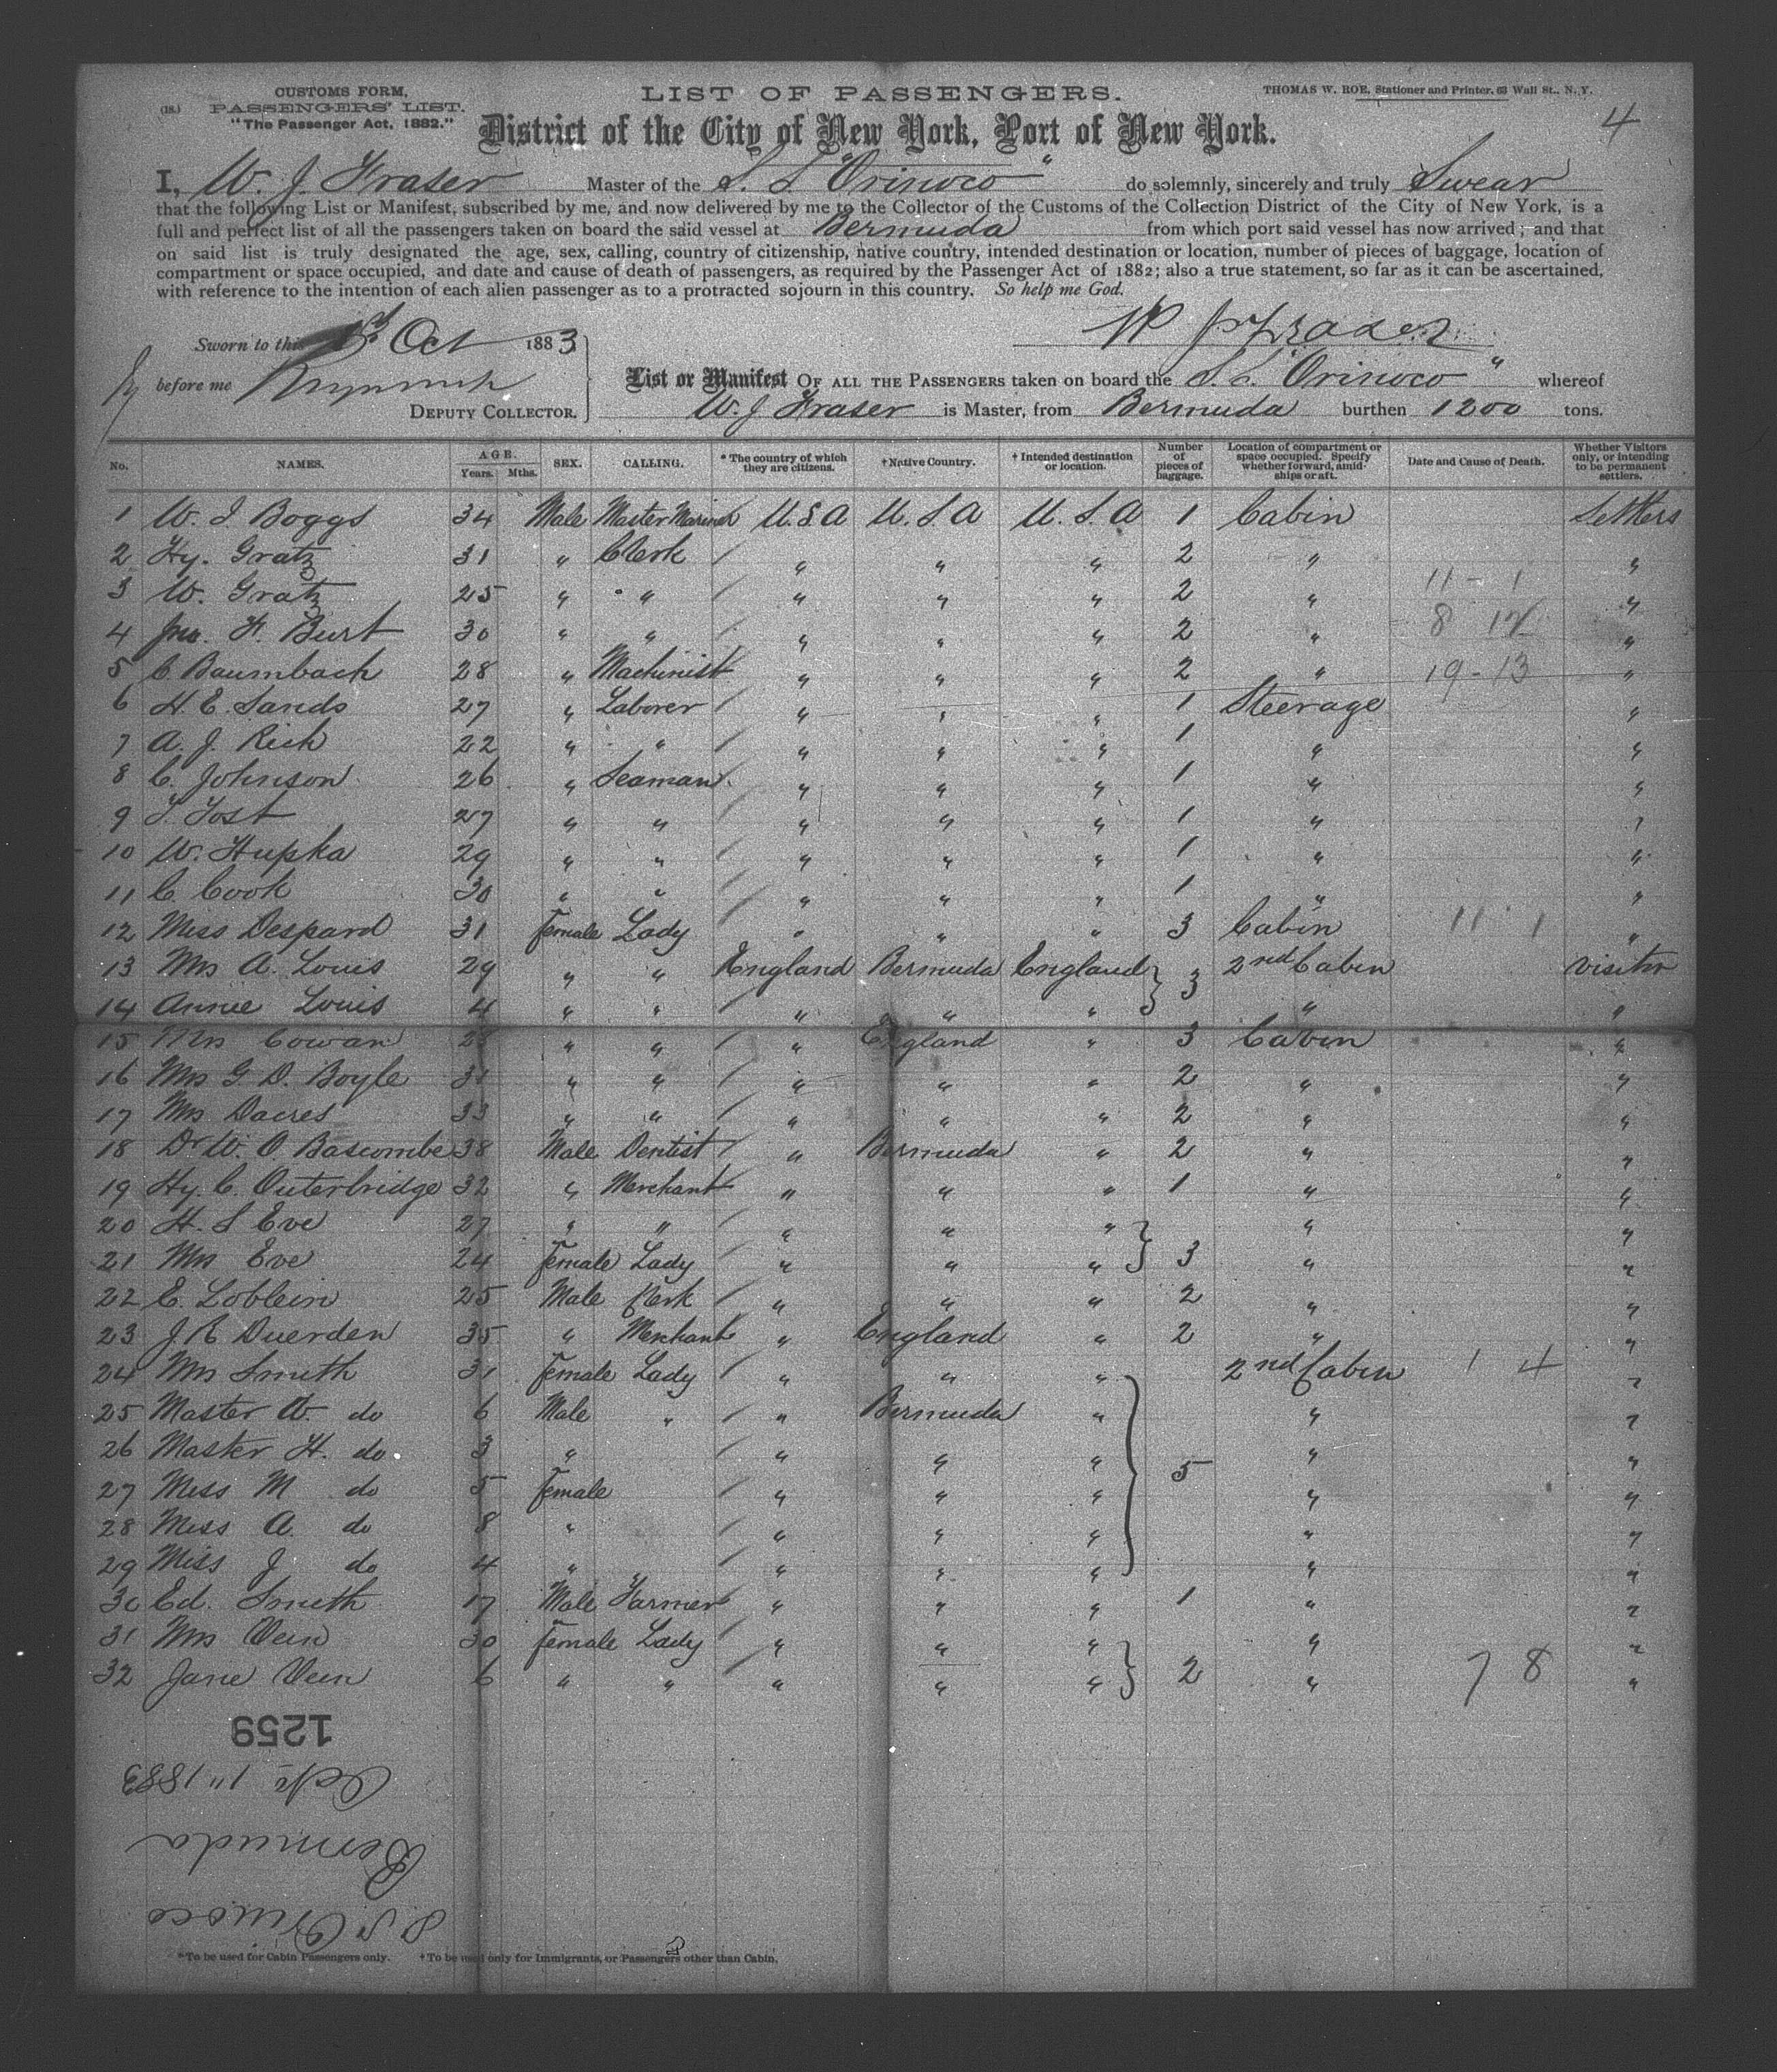 CUSTOMS FORM,
(18.) PASSENGERS' LIST.
"The Passenger Act, 1882."
LIST OF PASSENGERS.
THOMAS W. ROE, Stationer and Printer, 63 Wall St., N.Y.
4
District of the City of New York, Port of New York.
I, W. J. Fraser Master of the S. S. "Orinoco" do solemnly, sincerely and truly Swear
that the following List or Manifest, subscribed by me, and now delivered by me to the Collector of the Customs of the Collection District of the City of New York, is a
full and perfect list of all the passengers taken on board the said vessel at Bermuda from which port said vessel has now arrived; and that
on said list is truly designated the age, sex, calling, country of citizenship, native country, intended destination or location, number of pieces of baggage, location of
compartment or space occupied, and date and cause of death of passengers, as required by the Passenger Act of 1882; also a true statement, so far as it can be ascertained,
with reference to the intention of each alien passenger as to a protracted sojourn in this country. So help me God.
W J Fraser
Sworn to this 1st Oct 1883
before me
DEPUTY COLLECTOR.
List or Manifest OF ALL THE PASSENGERS taken on board the S. S. "Orinoco" whereof
W. J Fraser is Master, from Bermuda burthen 1200 tons.
No. NAMES. AGE. Years. Mths. SEX. CALLING. * The country of which they are citizens. † Native Country. † Intended destination or location. Number of pieces of baggage. Location of compartment or space occupied. Specify whether forward, amidships or aft. Date and Cause of Death. Whether Visitors only, or intending to be permanent settlers.
1 W. J. Boggs 34 Male Master Mariner U.S.A U.S.A U.S.A 1 Cabin Settlers
2 Hy. Gratz 31 " Clerk " " " 2 " "
3 W. Gratz 25 " " " " " 2 " 11 - 1 "
4 Jno. F. Burt 30 " " " " " 2 " 8 12 "
5 C. Baumbach 28 " Machinist " " " 2 " 19 - 13 "
6 H. E. Sands 27 " Laborer " " " 1 Steerage "
7 A. J. Rich 22 " " " " " 1 " "
8 C. Johnson 26 " Seaman " " " 1 " "
9 T. Tost 27 " " " " " 1 " "
10 W. Hupka 29 " " " " " 1 " "
11 C. Cook 30 " " " " " 1 " "
12 Miss Despard 31 Female Lady " " " 3 Cabin 11 1 "
13 Mrs A. Louis 29 " " England Bermuda England 3 2nd Cabin visitor
14 Annie Louis 4 " " " " " " "
15 Mrs Cowan 28 " " " England " 3 Cabin "
16 Mrs G D. Boyle 31 " " " " " 2 " "
17 Mrs Dacres 33 " " " " " 2 " "
18 Dr W. O. Bascombe 38 Male Dentist " Bermuda " 2 " "
19 Hy. C. Outerbridge 32 " Merchant " " " 1 " "
20 H. S Eve 27 " " " " " " "
21 Mrs Eve 24 Female Lady " " " 3 " "
22 E. Loblein 25 Male Clerk " " " 2 " "
23 J R Duerden 35 " Merchant " England " 2 " "
24 Mrs Smith 31 Female Lady " " " 2nd Cabin 1 4 "
25 Master W. do 6 Male " " Bermuda " " "
26 Master H. do 3 " " " " " "
27 Miss M do 5 Female " " " 5 " "
28 Miss A. do 8 " " " " " "
29 Miss J do 4 " " " " " "
30 Ed. Smith 17 Male Farmer " " " 1 " "
31 Mrs Vein 30 Female Lady " " " " "
32 Jane Vein 6 " " " " " 2 " 7 8 "
1259
Octr 1" 1883
Bermuda
S. S Orinoco
* To be used for Cabin Passengers only. † To be used only for Immigrants, or Passengers other than Cabin.